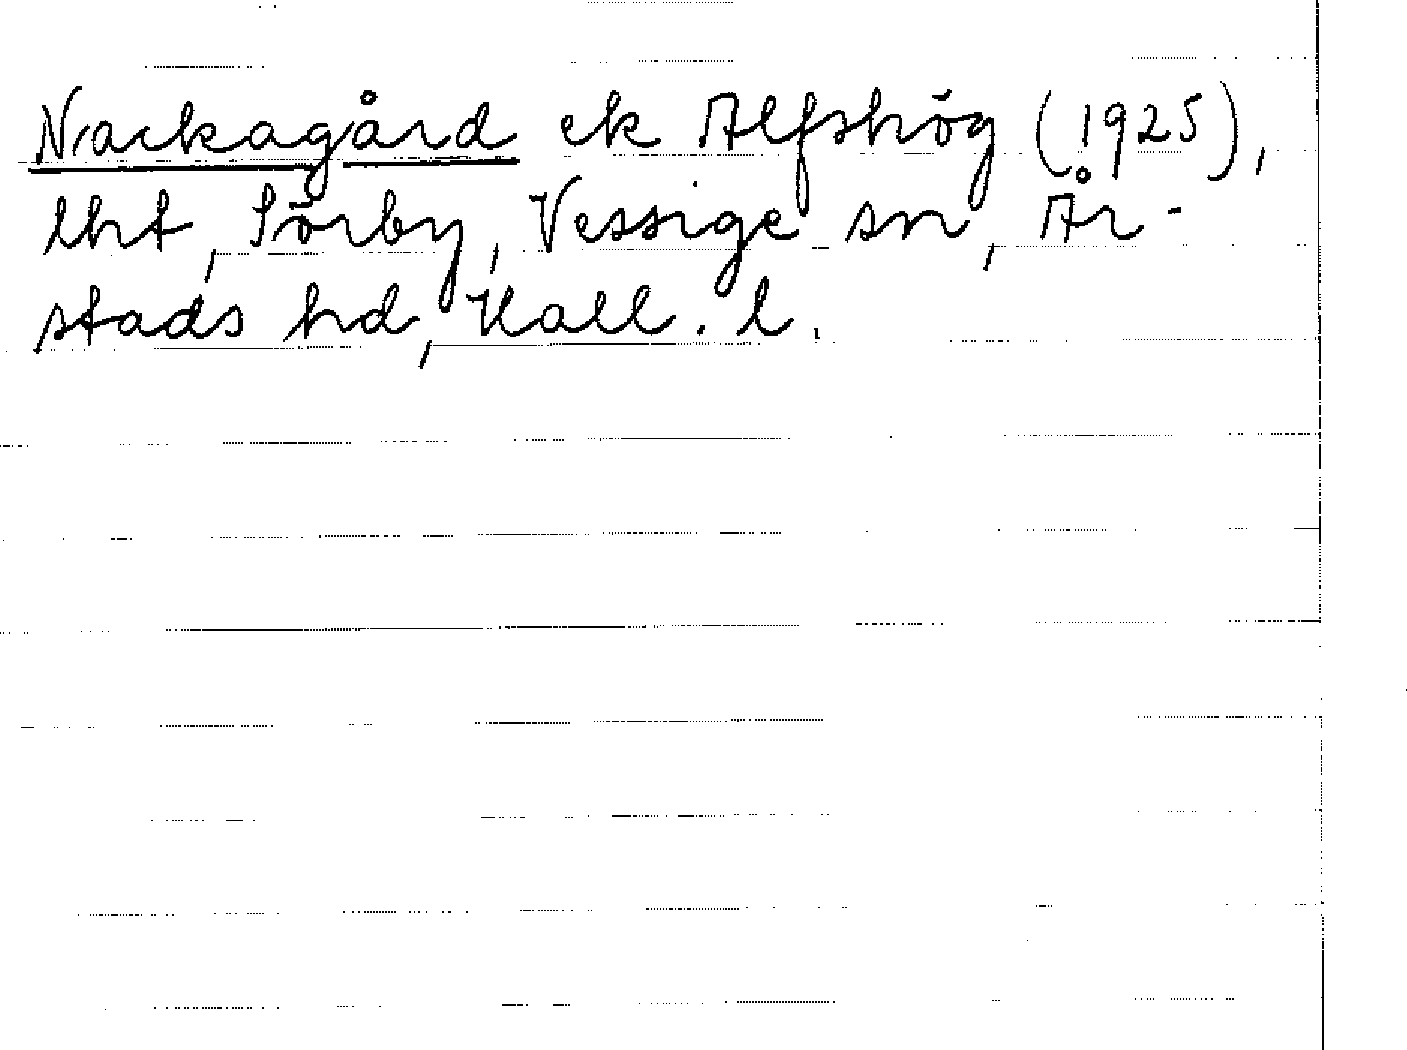 Nackagård ek Alfshög (1925),
lht, Sörby, Vessige sn, År-
stads hd, Hall. l.